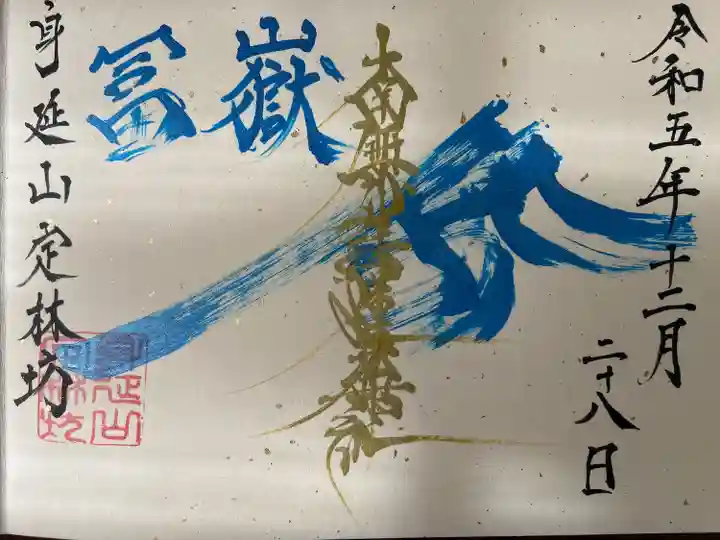 令和五年十二月
二十八日
南無妙法蓮華経
冨嶽
身延山定林坊
身延山
定林坊